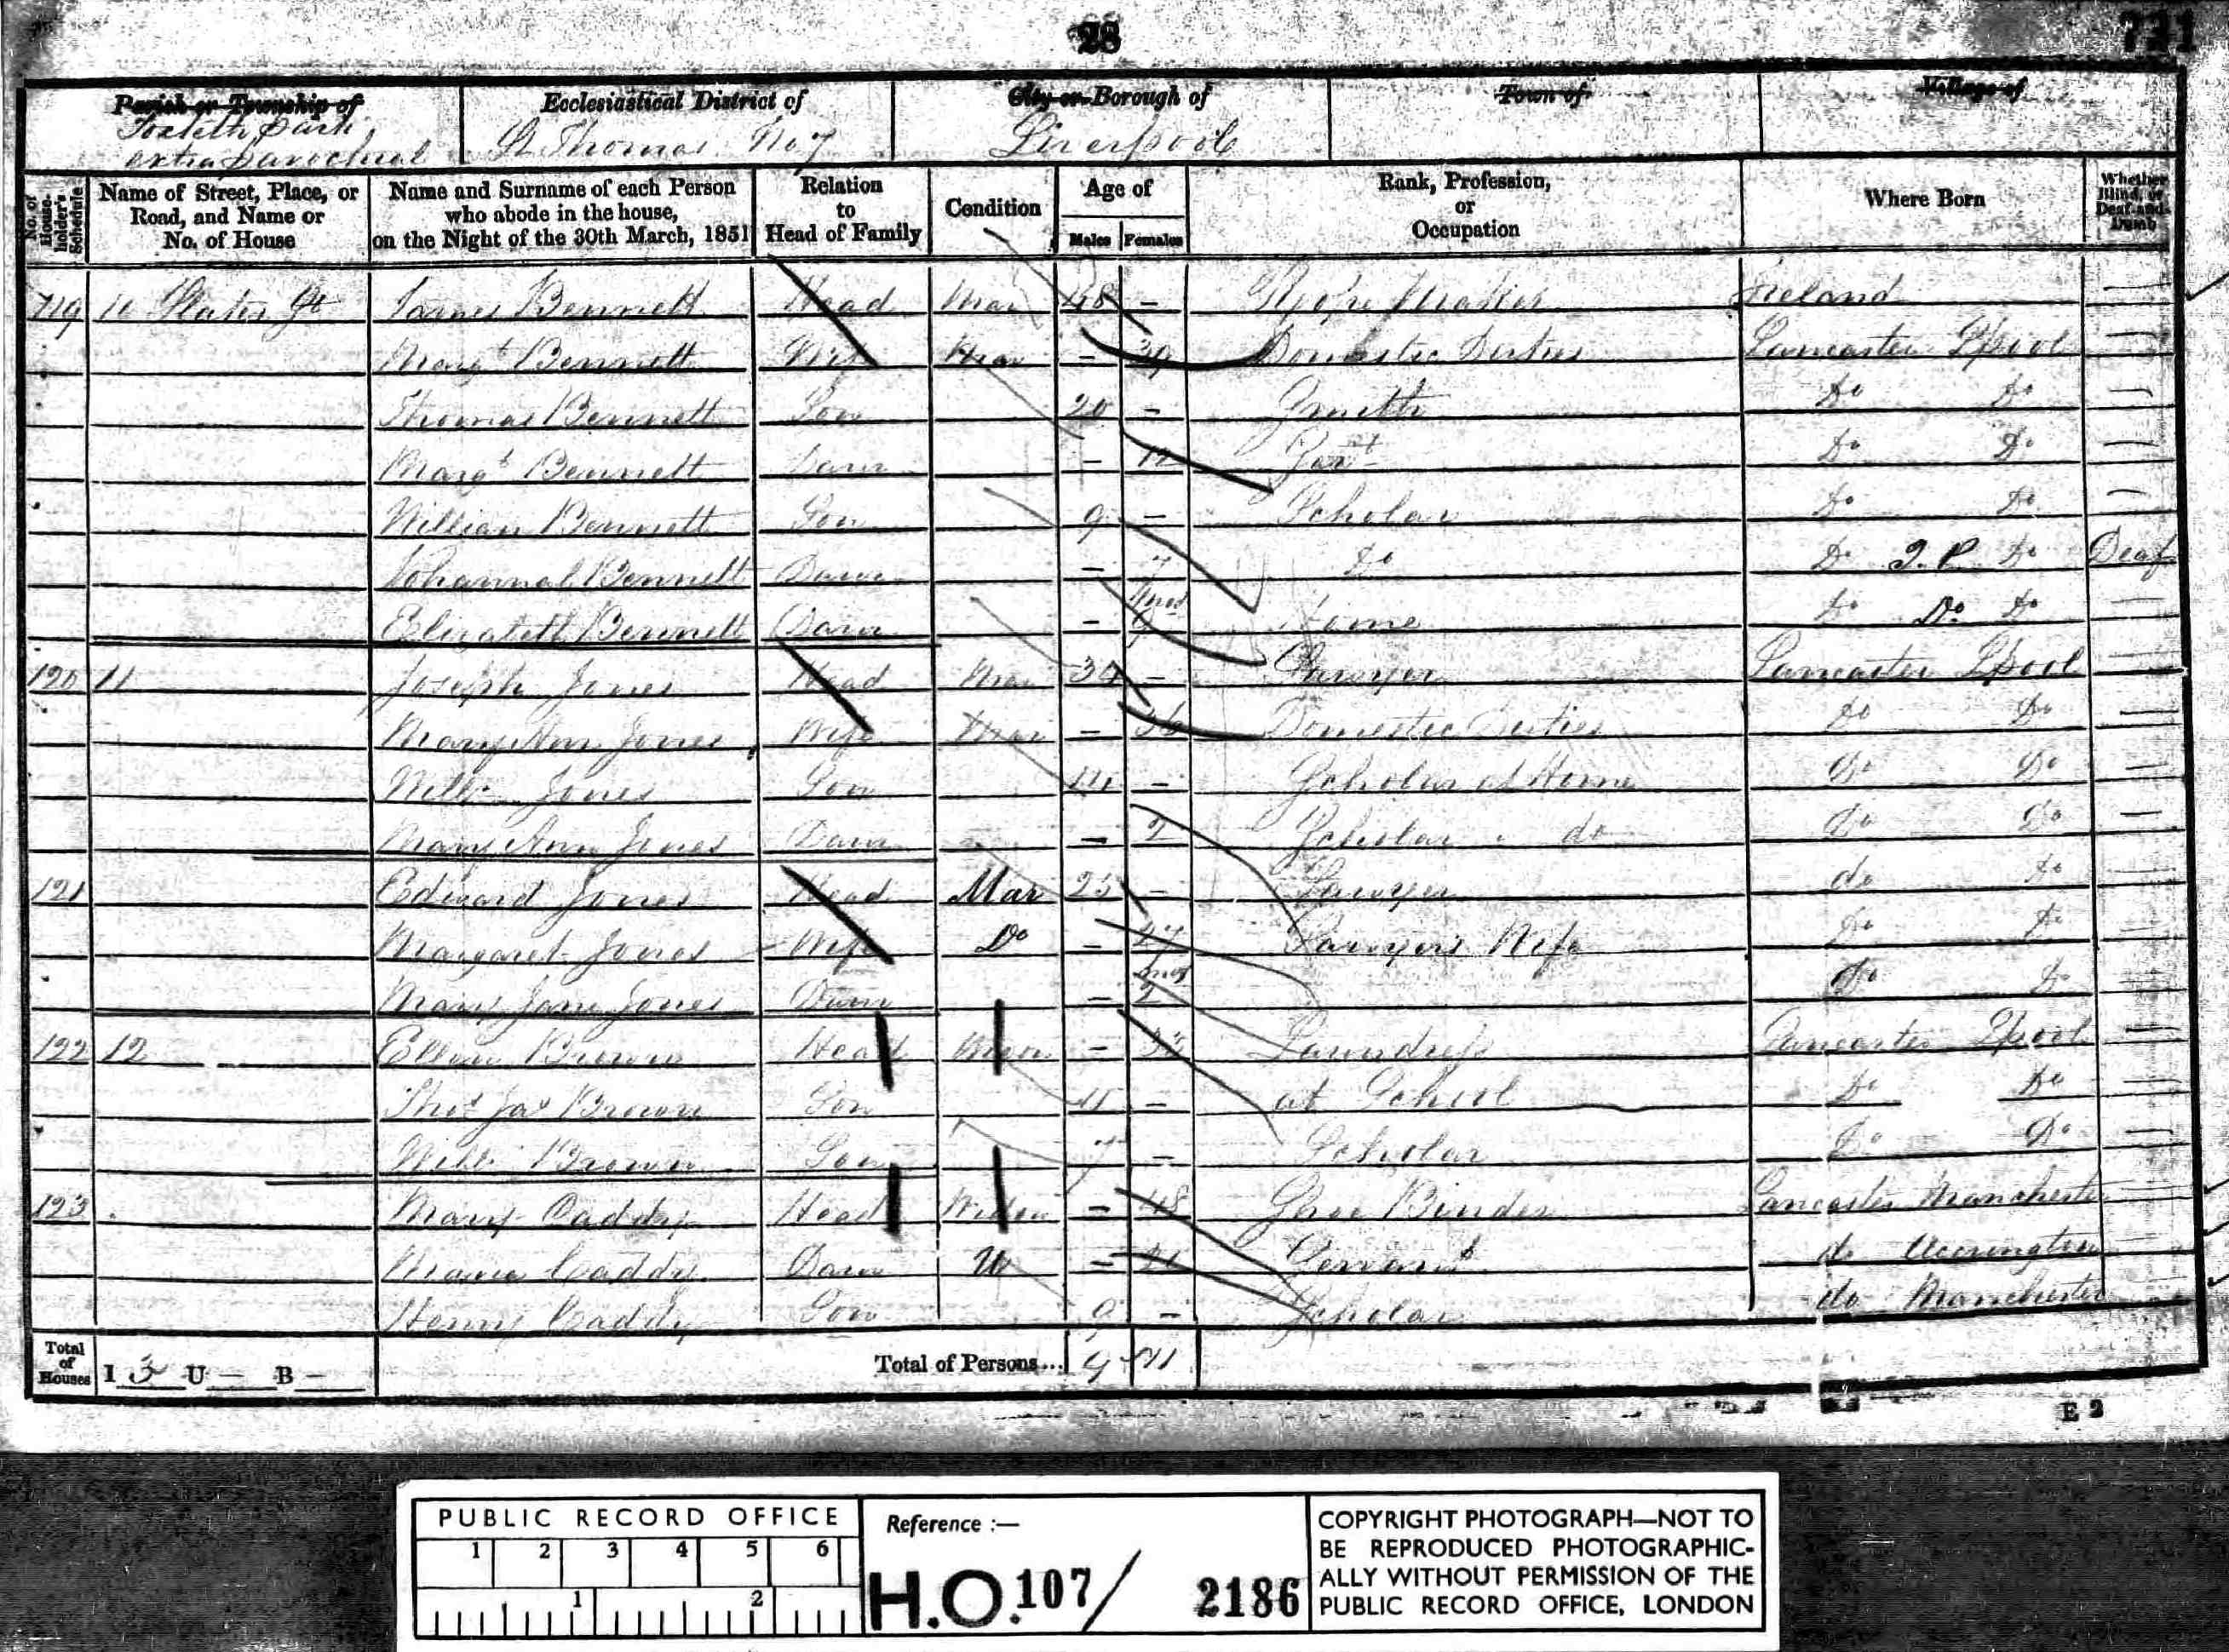 28
Parish or Township of
Toxteth Park
extra Parochial
Ecclesiastical District of
St Thomas No 7
City or Borough of
Liverpool
Town of
Village of
No. of House-holder's Schedule
Name of Street, Place, or Road, and Name or No. of House
Name and Surname of each Person who abode in the house, on the Night of the 30th March, 1851
Relation to Head of Family
Condition
Age of
Males Females
Rank, Profession, or Occupation
Where Born
Whether Blind, or Deaf-and-Dumb
119 10 Slater St James Bennett Head Mar 48 — Rope Maker Ireland —
Margt Bennett Wife Mar — 39 Domestic Duties Lancaster Lpool —
Thomas Bennett Son 20 — Smith Do Do —
Margt Bennett Daur — 12 Do Do —
William Bennett Son 9 — Scholar Do Do —
Johannah Bennett Daur — 7 Do Do Do Deaf
Elizabeth Bennett Daur — mos 9 Home Do Do Do —
120 11 Joseph Jones Head Mar — Sawyer Lancaster Lpool —
Mary Ann Jones Wife Mar — 36 Domestic Duties Do Do —
Willm Jones Son 14 — Scholar at Home Do Do —
Mary Ann Jones Daur — 2 Scholar do Do Do —
121 Edward Jones Head Mar 25 — Sawyer do Do —
Margaret Jones Wife Do — 27 Sawyer's Wife Do Do —
Mary Jane Jones Daur — mos 2 Do Do —
122 12 Ellen Brown Head Mar — Laundress Lancaster Lpool —
Thos Jas Brown Son 11 — at School Do Do —
Willm Brown Son 7 — Scholar Do Do —
123 Mary Caddy Head Widow — 48 Shoe Binder Lancaster Manchester
Maria Caddy Daur U — Servant do Accrington
Henry Caddy Son 9 — Scholar do Manchester
Total of Houses I 3 U — B —
Total of Persons... 9 11
E 2
PUBLIC RECORD OFFICE
1 2 3 4 5 6
1 2
Reference :—
H.O. 107/ 2186
COPYRIGHT PHOTOGRAPH—NOT TO
BE REPRODUCED PHOTOGRAPHIC-
ALLY WITHOUT PERMISSION OF THE
PUBLIC RECORD OFFICE, LONDON